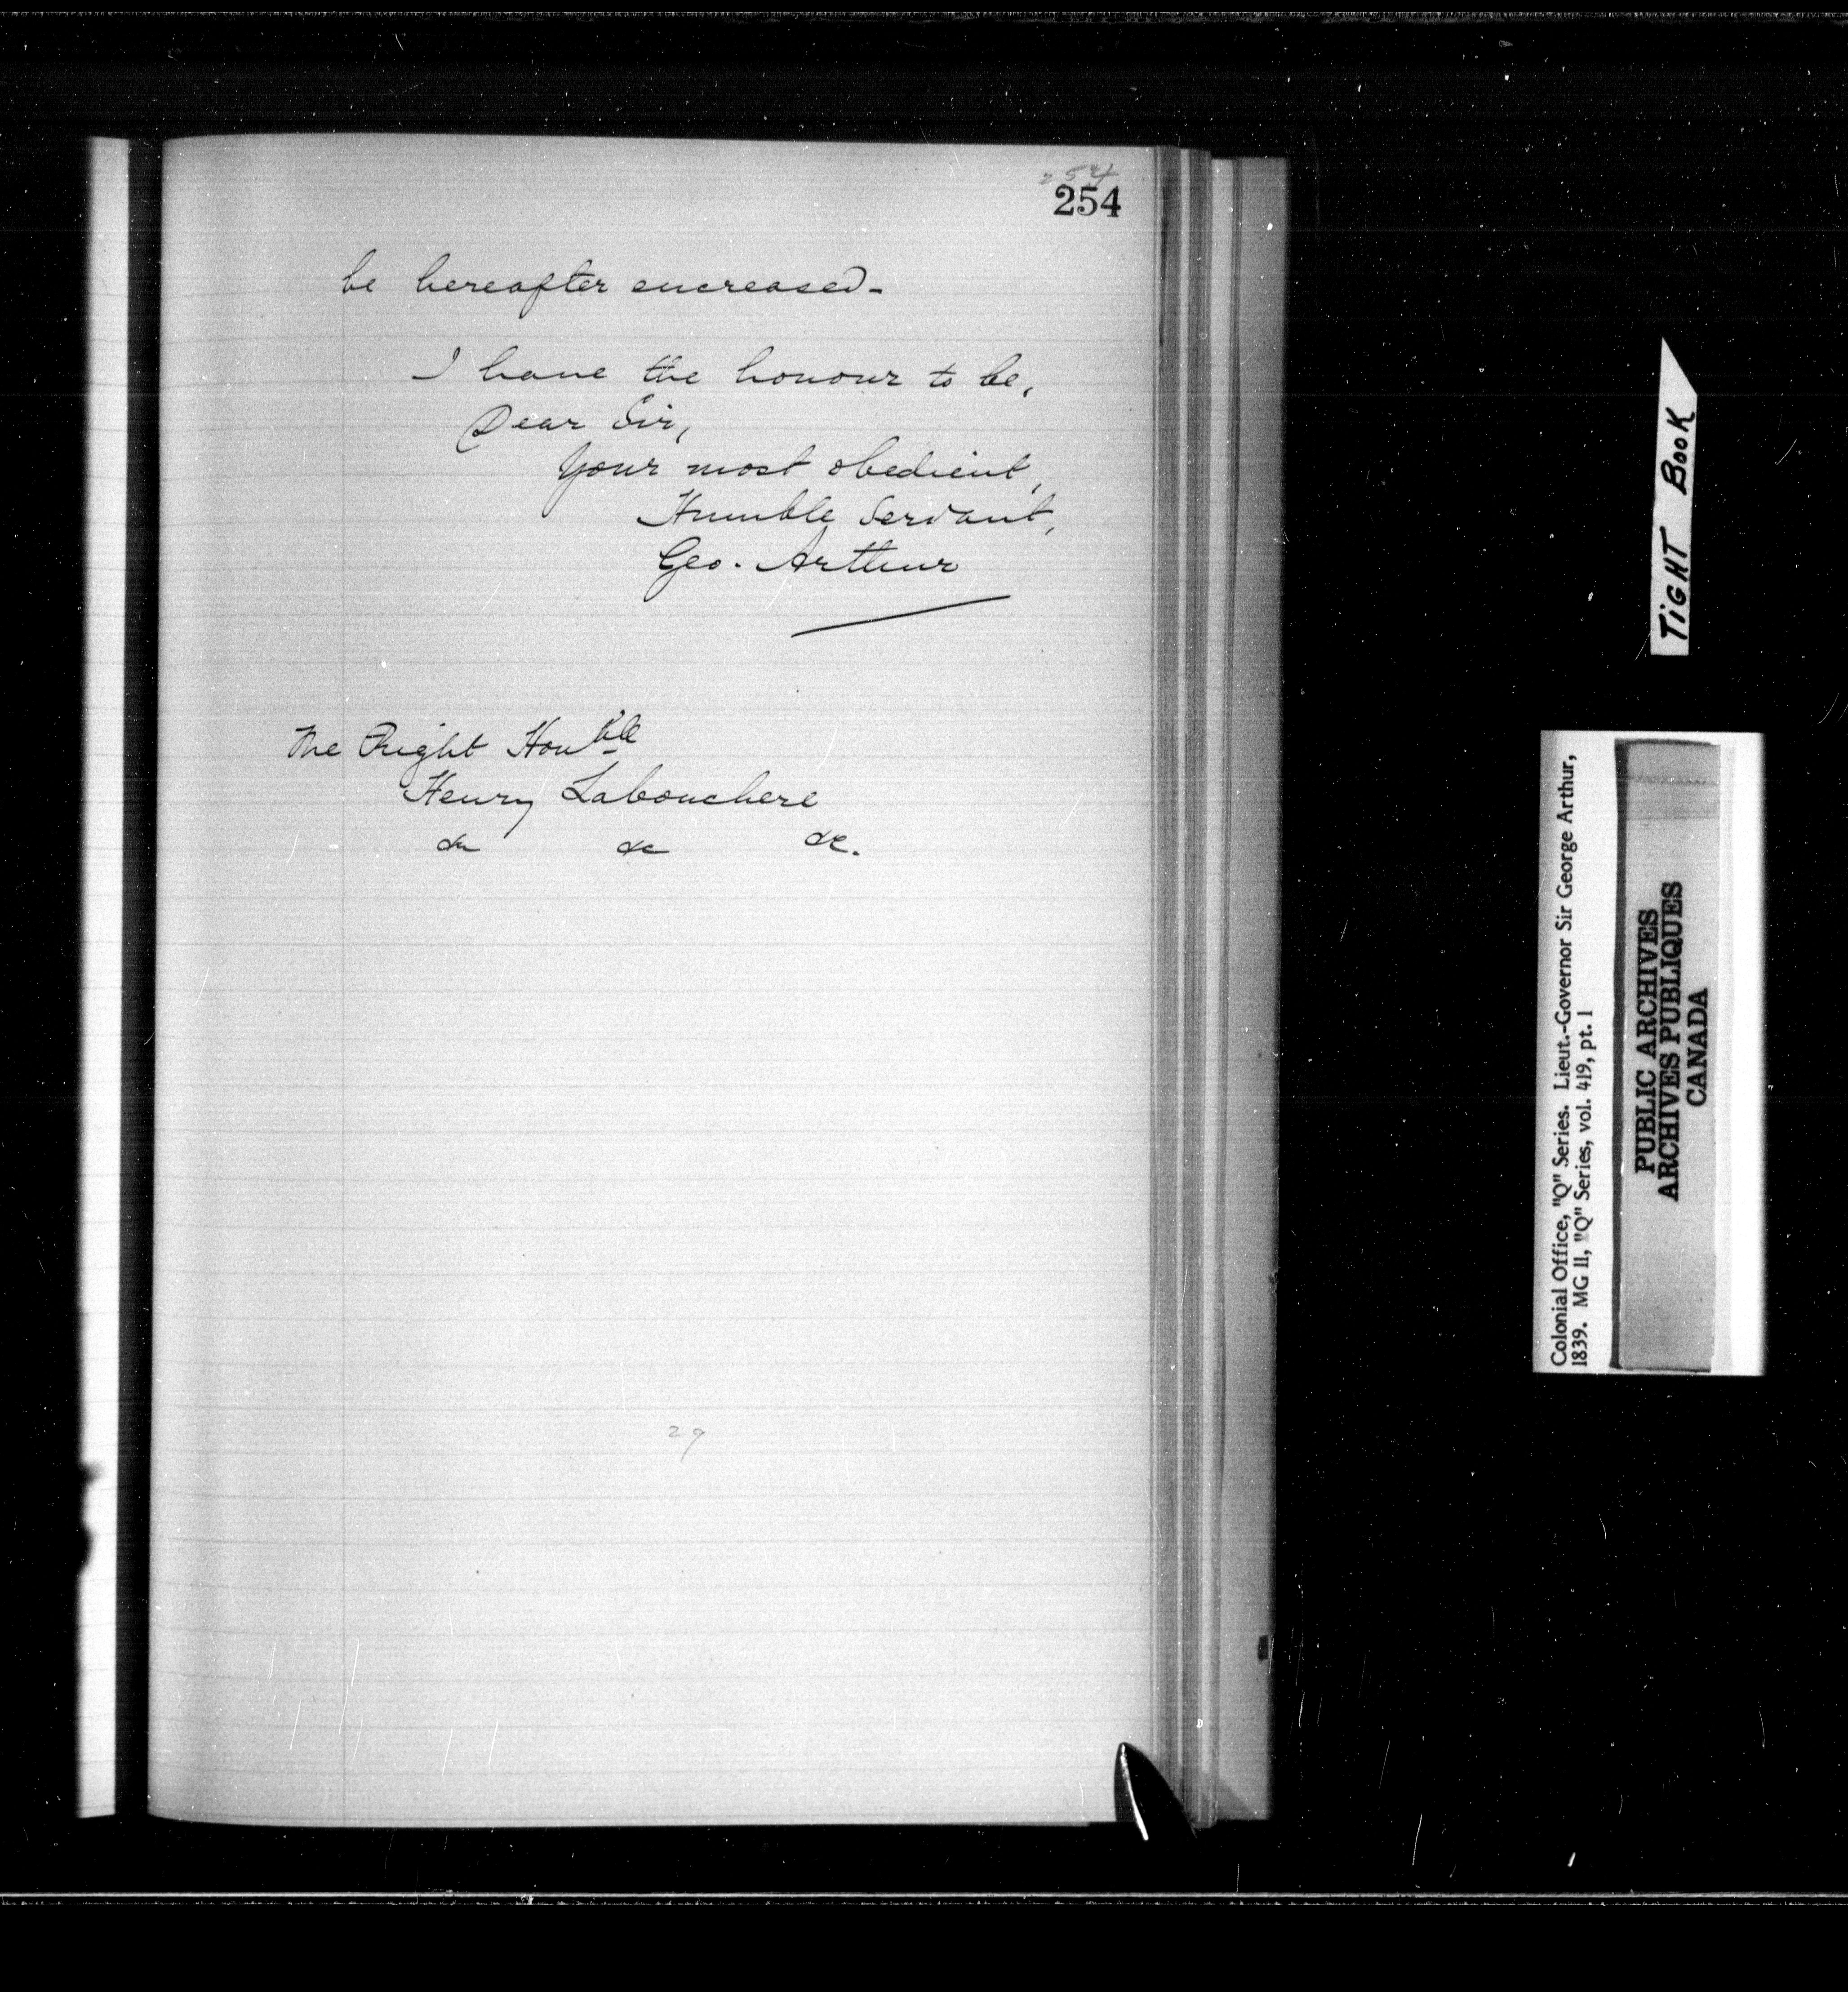 254
254
be hereafter encreased-
I have the honour to be,
Dear Sir,
Your most obedient,
Humble Servant,
Geo. Arthur
The Right Honble
Henry Labouchere
&c &c &c.
29
TIGHT BOOK
Colonial Office, "Q" Series. Lieut.-Governor Sir George Arthur,
1839. MG 11, "Q" Series, vol. 419, pt. 1
PUBLIC ARCHIVES
ARCHIVES PUBLIQUES
CANADA